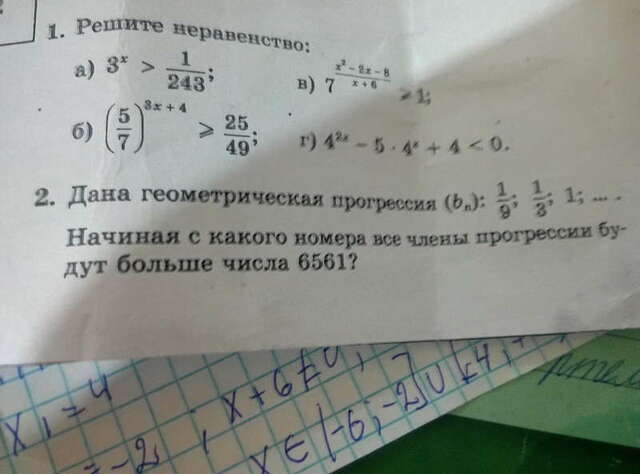 1. Решите неравенство:
а) 3^x > 1/243;
в) 7^((x² − 2x − 8)/(x + 6)) > 1;
б) (5/7)^(3x + 4) ⩾ 25/49;
г) 4^(2x) − 5 · 4^x + 4 < 0.
2. Дана геометрическая прогрессия (bₙ): 1/9; 1/3; 1; ... .
Начиная с какого номера все члены прогрессии бу-
дут больше числа 6561?
x₁ = 4
= -2, x+6≠0,
x ∈ (-6; -2)∪(4;